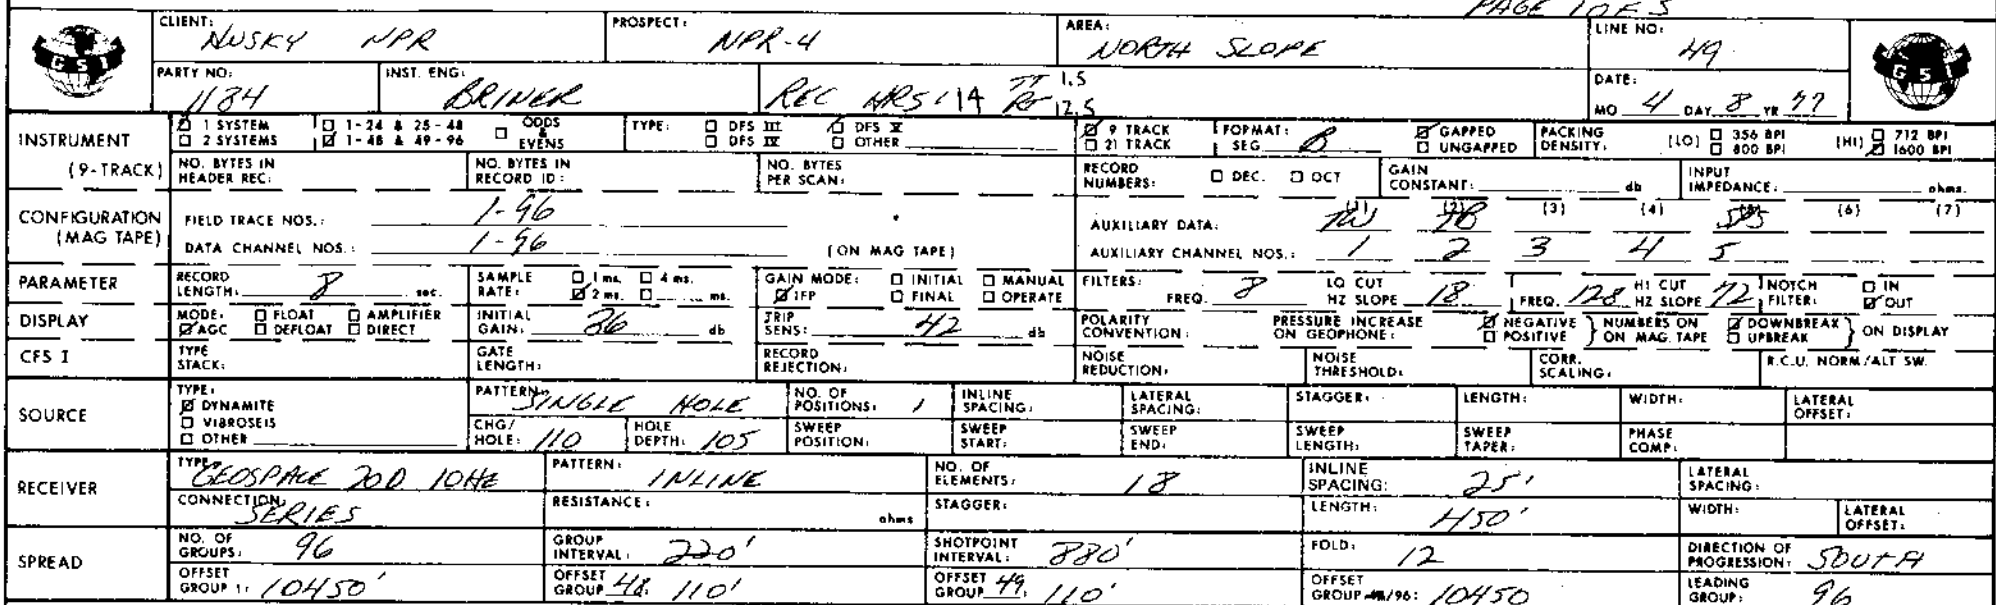 PAGE 1 OF 5
CLIENT: HUSKY NPR PROSPECT: NPR-4 AREA: NORTH SLOPE LINE NO: 49
GSI GSI
PARTY NO: 1184 INST. ENG: BRINER REC HRS: 14 TT 1.5 RT 12.5 DATE: MO 4 DAY 8 YR 77
INSTRUMENT 1 SYSTEM 1-24 & 25-48 ODDS & EVENS TYPE: DFS III DFS V 9 TRACK FORMAT: GAPPED PACKING (LO) 356 BPI (HI) 712 BPI
2 SYSTEMS 1-48 & 49-96 DFS IV OTHER 21 TRACK SEG B UNGAPPED DENSITY: 800 BPI 1600 BPI
(9-TRACK) NO. BYTES IN HEADER REC: NO. BYTES IN RECORD ID: NO. BYTES PER SCAN: RECORD NUMBERS: DEC. OCT GAIN CONSTANT: db INPUT IMPEDANCE: ohms.
CONFIGURATION (MAG TAPE) FIELD TRACE NOS.: 1-96 AUXILIARY DATA: (1) (2) TB (3) (4) (6) (7)
DATA CHANNEL NOS.: 1-96 (ON MAG TAPE) AUXILIARY CHANNEL NOS.: 1 2 3 4 5
PARAMETER RECORD LENGTH: 8 sec. SAMPLE RATE: 1 ms. 4 ms. 2 ms. ms. GAIN MODE: INITIAL MANUAL IFP FINAL OPERATE FILTERS: FREQ. 8 LO CUT HZ SLOPE 18 FREQ. 128 HI CUT HZ SLOPE 72 NOTCH FILTER: IN OUT
DISPLAY MODE: FLOAT AMPLIFIER AGC DEFLOAT DIRECT INITIAL GAIN: 36 db TRIP SENS: 42 db POLARITY CONVENTION: PRESSURE INCREASE ON GEOPHONE: NEGATIVE POSITIVE } NUMBERS ON ON MAG. TAPE DOWNBREAK UPBREAK } ON DISPLAY
CFS I TYPE STACK: GATE LENGTH: RECORD REJECTION: NOISE REDUCTION: NOISE THRESHOLD: CORR. SCALING: R.C.U. NORM/ALT SW.
SOURCE TYPE: DYNAMITE VIBROSEIS OTHER PATTERN: SINGLE HOLE NO. OF POSITIONS: 1 INLINE SPACING: LATERAL SPACING: STAGGER: LENGTH: WIDTH: LATERAL OFFSET:
CHG/HOLE: 110 HOLE DEPTH: 105 SWEEP POSITION: SWEEP START: SWEEP END: SWEEP LENGTH: SWEEP TAPER: PHASE COMP:
RECEIVER TYPE: GEOSPACE 20D 10HZ PATTERN: INLINE NO. OF ELEMENTS: 18 INLINE SPACING: 25' LATERAL SPACING:
CONNECTION: SERIES RESISTANCE: ohms STAGGER: LENGTH: 450' WIDTH: LATERAL OFFSET:
SPREAD NO. OF GROUPS: 96 GROUP INTERVAL: 220' SHOTPOINT INTERVAL: 880' FOLD: 12 DIRECTION OF PROGRESSION: SOUTH
OFFSET GROUP 1: 10450' OFFSET GROUP 48: 110' OFFSET GROUP 49: 110' OFFSET GROUP /96: 10450 LEADING GROUP: 96